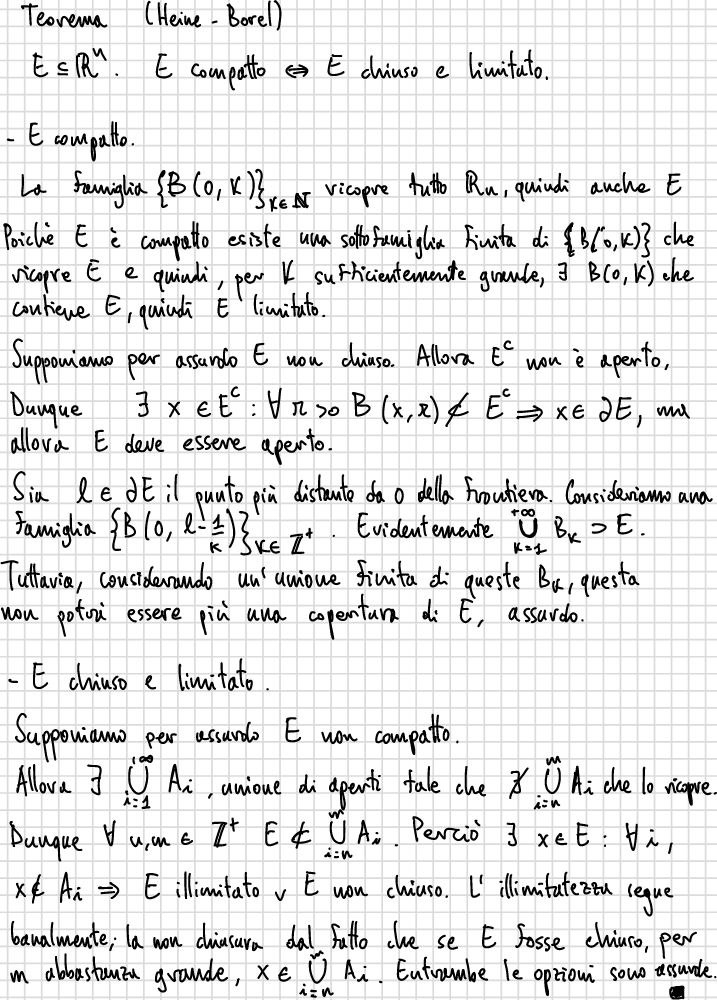 Teorema (Heine-Borel)
E ⊆ ℝⁿ. E compatto ⇔ E chiuso e limitato.
- E compatto.
La famiglia {B(0,K)}_{K∈ℕ} ricopre tutto ℝn, quindi anche E
Poiché E è compatto esiste una sottofamiglia finita di {B(0,K)} che
ricopre E e quindi, per K sufficientemente grande, ∃ B(0,K) che
contiene E, quindi E limitato.
Supponiamo per assurdo E non chiuso. Allora E^c non è aperto,
Dunque ∃ x ∈ E^c : ∀ r > 0 B(x,r) ⊄ E^c ⇒ x ∈ ∂E, ma
allora E deve essere aperto.
Sia l ∈ ∂E il punto più distante da 0 della frontiera. Consideriamo una
famiglia {B(0, l-1/K)}_{K∈ℤ⁺}. Evidentemente ⋃_{K=1}^{+∞} B_K ⊃ E.
Tuttavia, considerando un'unione finita di queste B_K, questa
non potrà essere più una copertura di E, assurdo.
- E chiuso e limitato.
Supponiamo per assurdo E non compatto.
Allora ∃ ⋃_{i=1}^{+∞} A_i, unione di aperti tale che ∄ ⋃_{i=n}^{m} A_i che lo ricopre.
Dunque ∀ n,m ∈ ℤ⁺ E ⊄ ⋃_{i=n}^{m} A_i. Perciò ∃ x ∈ E : ∀ i,
x ∉ A_i ⇒ E illimitato ∨ E non chiuso. L'illimitatezza segue
banalmente; la non chiusura dal fatto che se E fosse chiuso, per
m abbastanza grande, x ∈ ⋃_{i=n}^{m} A_i. Entrambe le opzioni sono assurde.